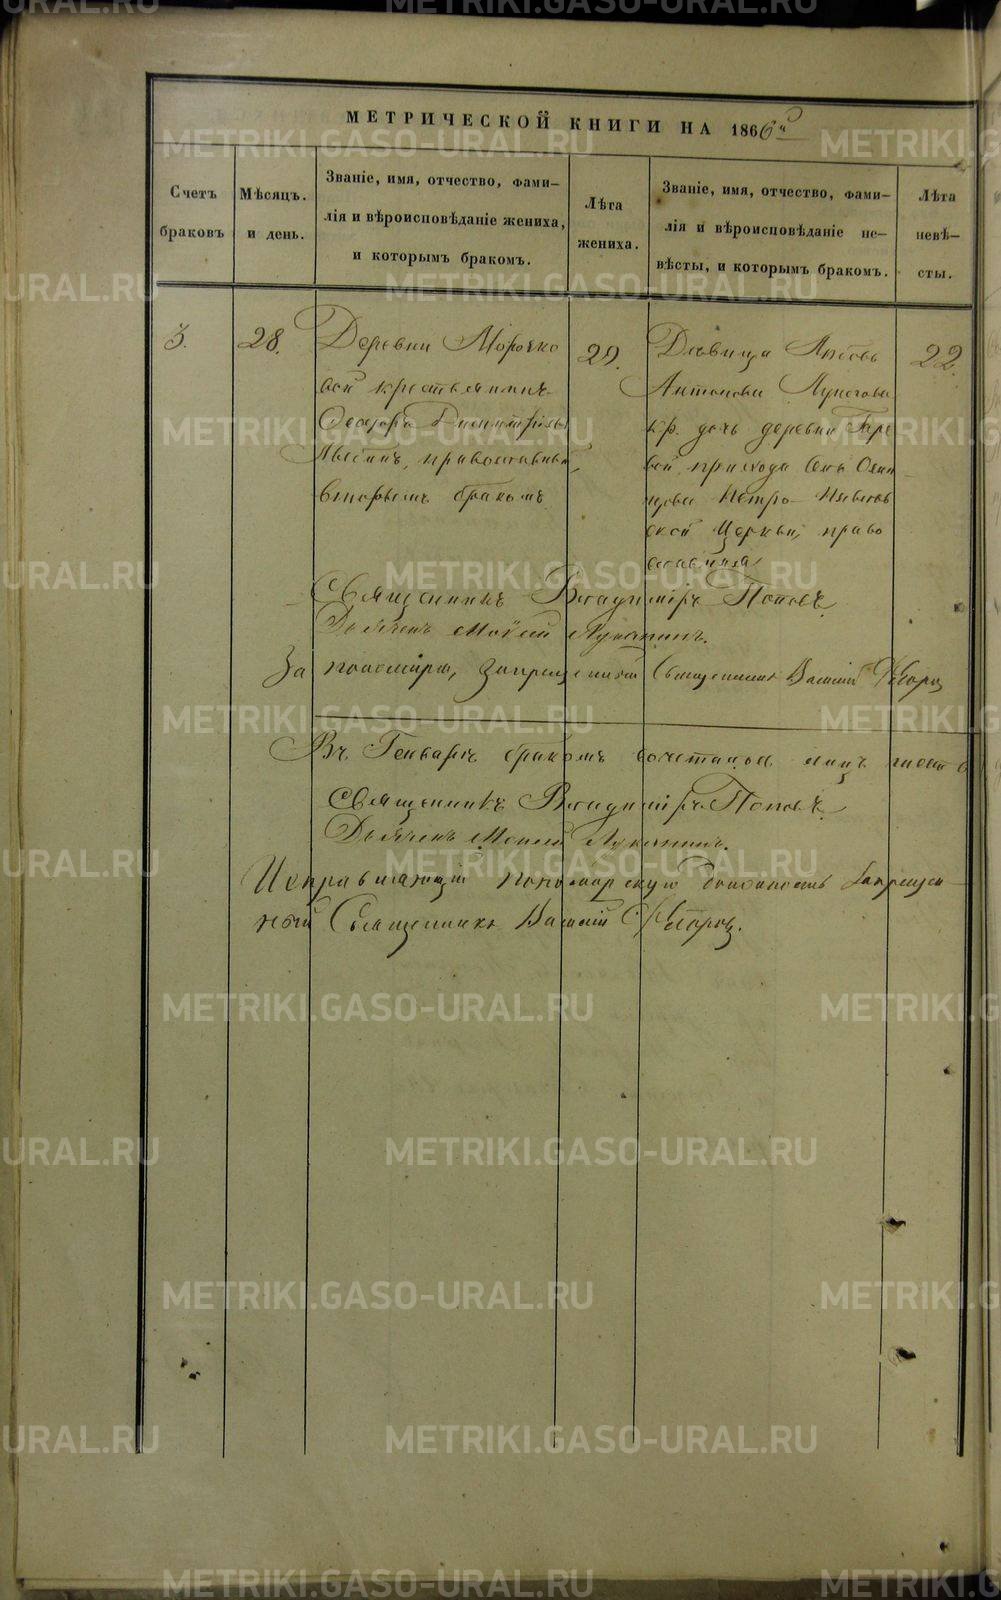 МЕТРИЧЕСКОЙ КНИГИ НА 1866й
Счетъ браковъ
Мѣсяцъ. и день.
Званіе, имя, отчество, фами-
лія и вѣроисповѣданіе жениха,
и которымъ бракомъ.
Лѣта жениха.
Званіе, имя, отчество, фами-
лія и вѣроисповѣданіе не-
вѣсты, и которымъ бракомъ.
Лѣта невѣ-
сты.
3.
28.
Деревни
вой крестьянинъ
Феодоръ Димитріевъ
православный,
вторымъ бракомъ
29.
Дѣвица
Антонова
кр. дочь деревни Гаре
вой, прихода
Петро-Павлов
ской Церкви, право
славная
22.
Священникъ Владиміръ Поповъ
Дьячекъ Моисей Лукянинъ.
За пономаря, запрещенный Священникъ Василій
Въ Генварѣ бракомъ сочетался
Священникъ Владиміръ Поповъ
Дьячекъ Моисей Лукянинъ.
Исправляющій пономарскую должность запрещен-
ный Священникъ Василій
METRIKI.GASO-URAL.RU